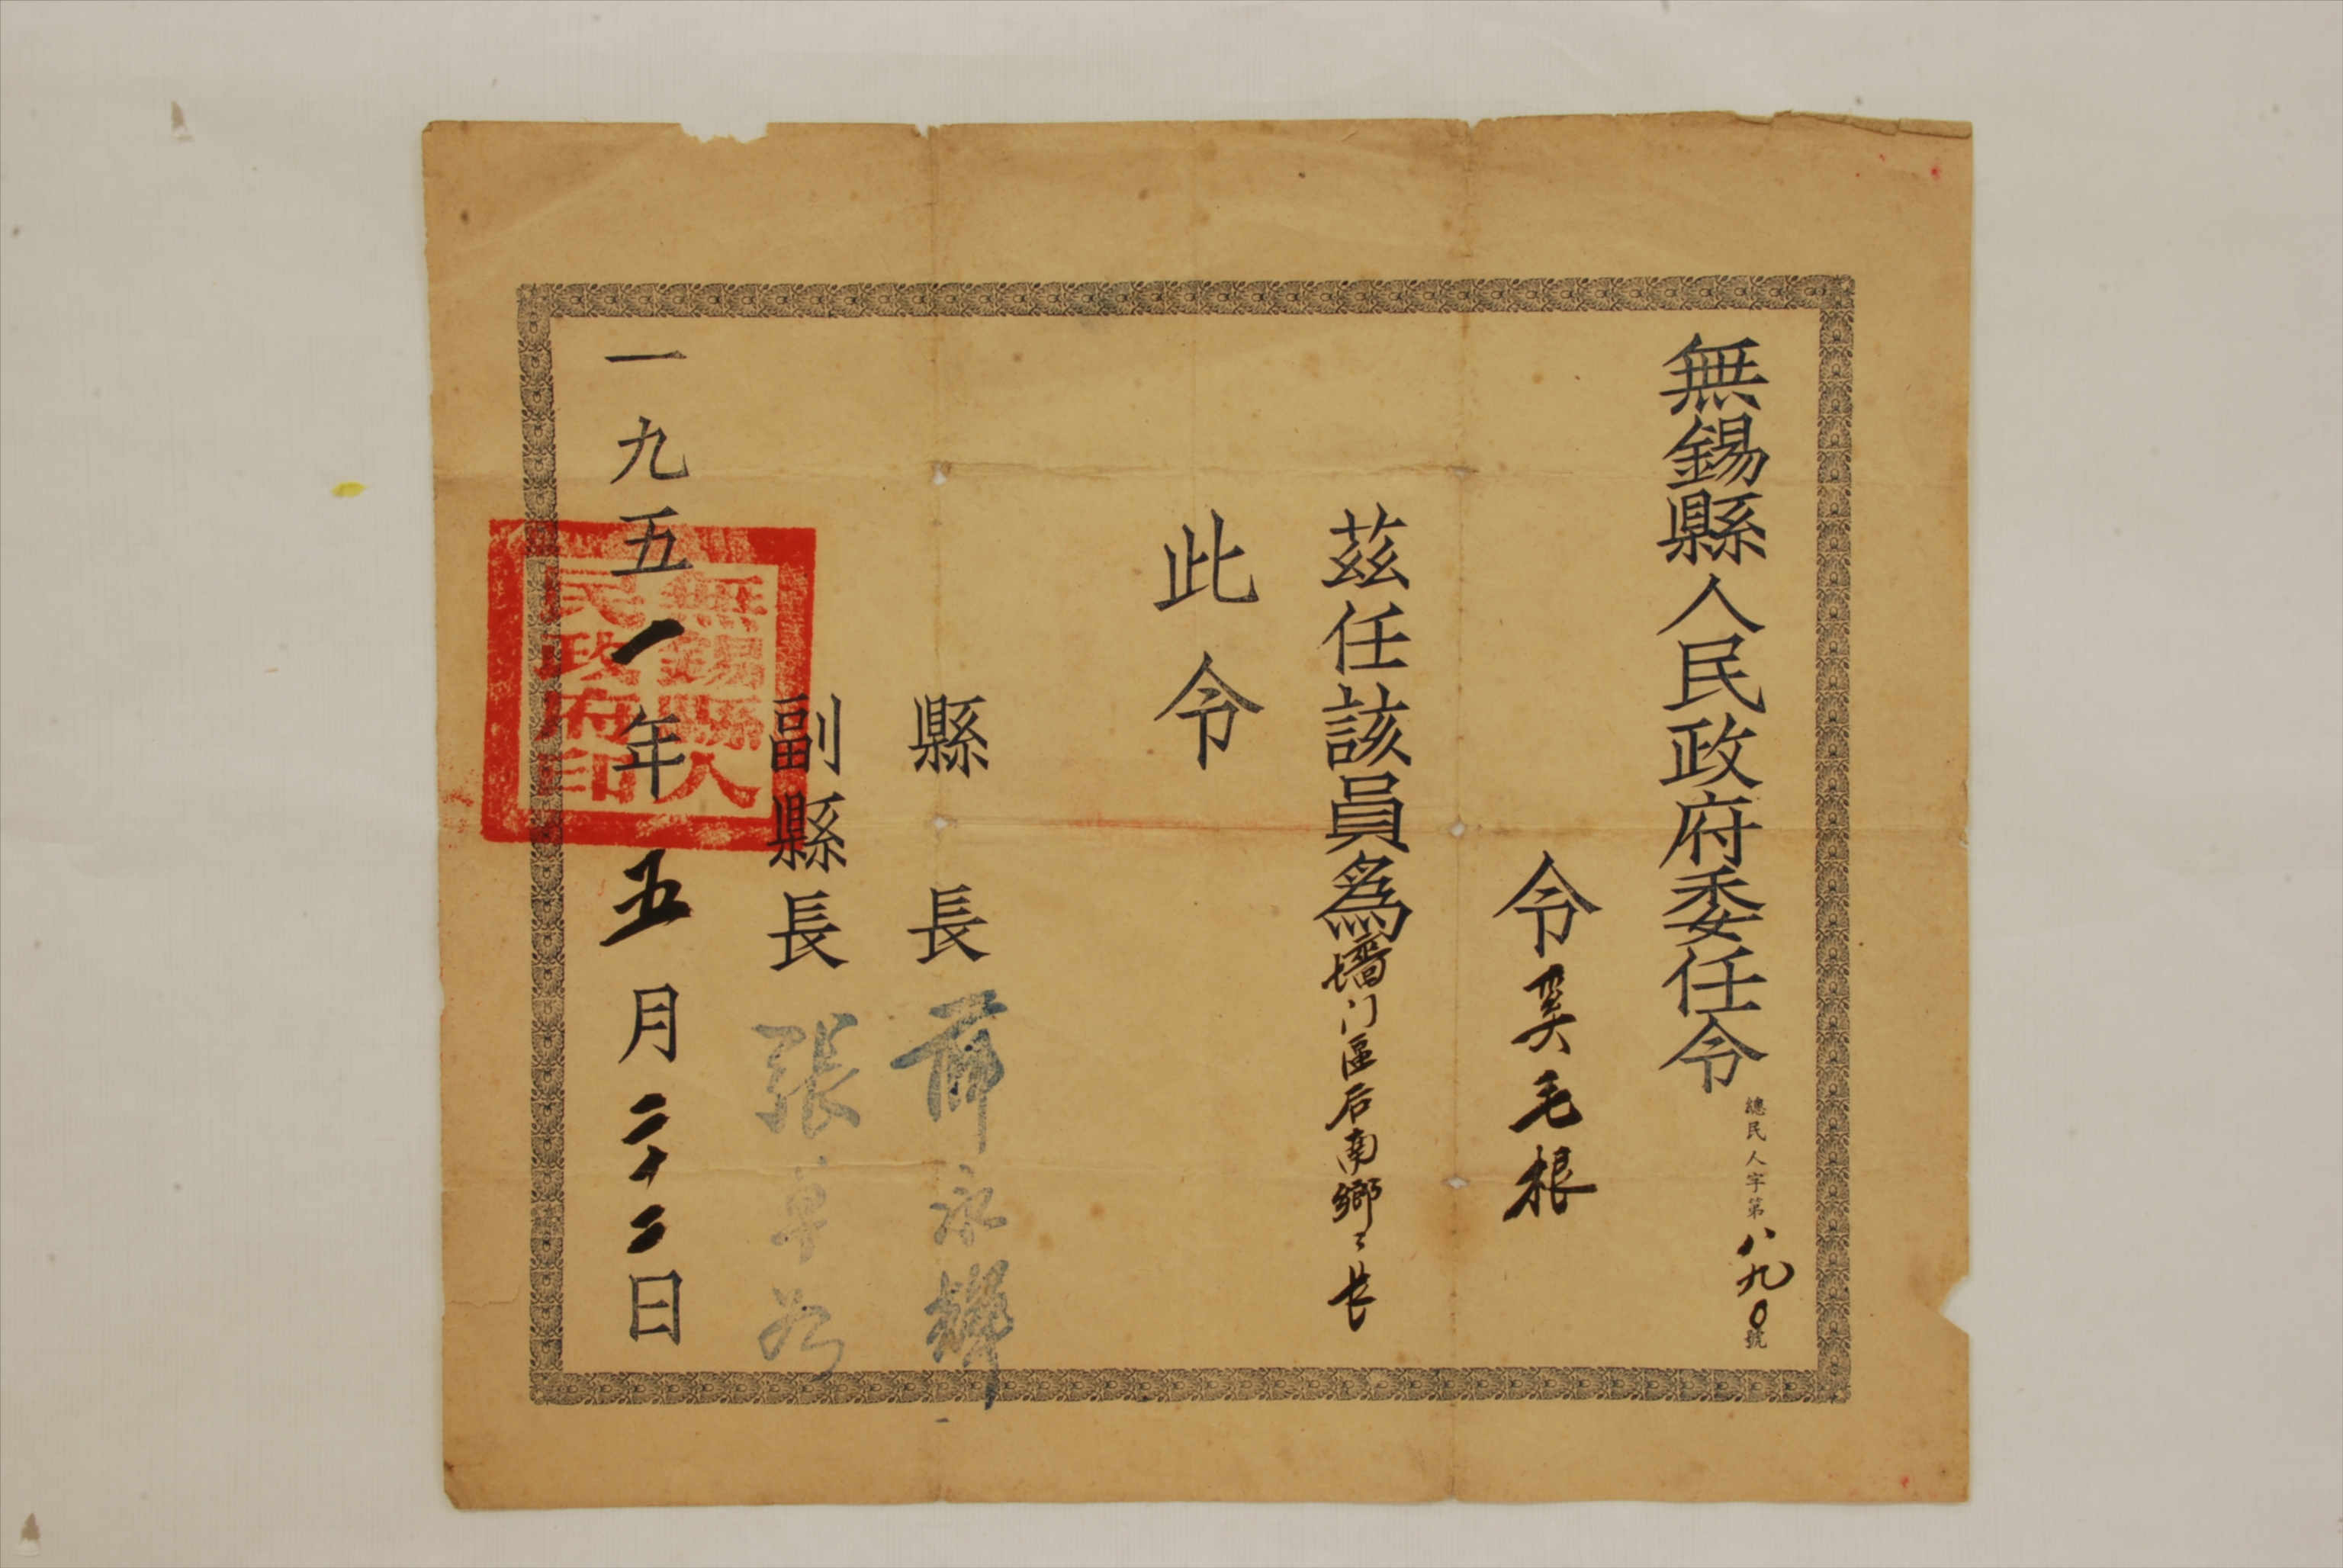 無錫縣人民政府委任令
總民人字第八九〇號
令吴毛根
茲任該員爲墻门區后南鄉〻长
此令
縣長 薛永輝
副縣長 張卓如
一九五一年五月二十二日
無錫縣人
民政府印